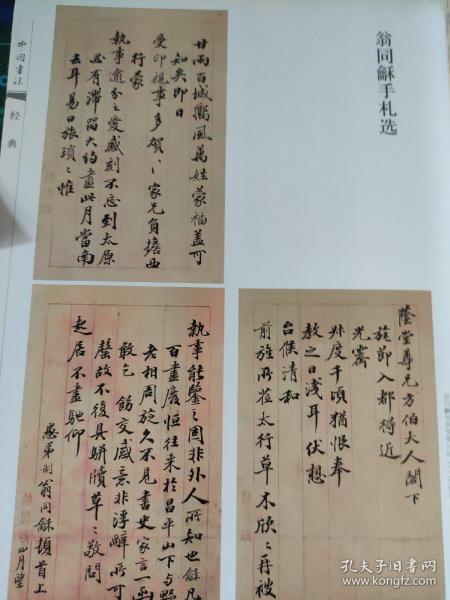 翁同龢手札选
中国书法
经典
蔭堂尊兄方伯大人閣下
旌節入都得近
光霽
叔度千頃猶恨奉
教之日淺耳伏想
台候清和
前旌所莅太行草木欣〻再被
甘雨百城嚮風萬姓蒙福蓋可
知矣即日
受印視事多賀〻家兄負擔西
行蒙
執事逾分之愛感刻不忘到太原
必有滯留大約盡此月當南
去耳易日旅瑣〻惟
執事能鑒之固非外人所知也龢凡
百盡廢恒往來於昌平山下与野
老相周旋久不見書史家言一函
敢乞飭交感意非浮辭所可
罄故不復具牘草〻敬問
起居不盡馳仰
愚弟制翁同龢頓首上
四月望
孔夫子旧书网